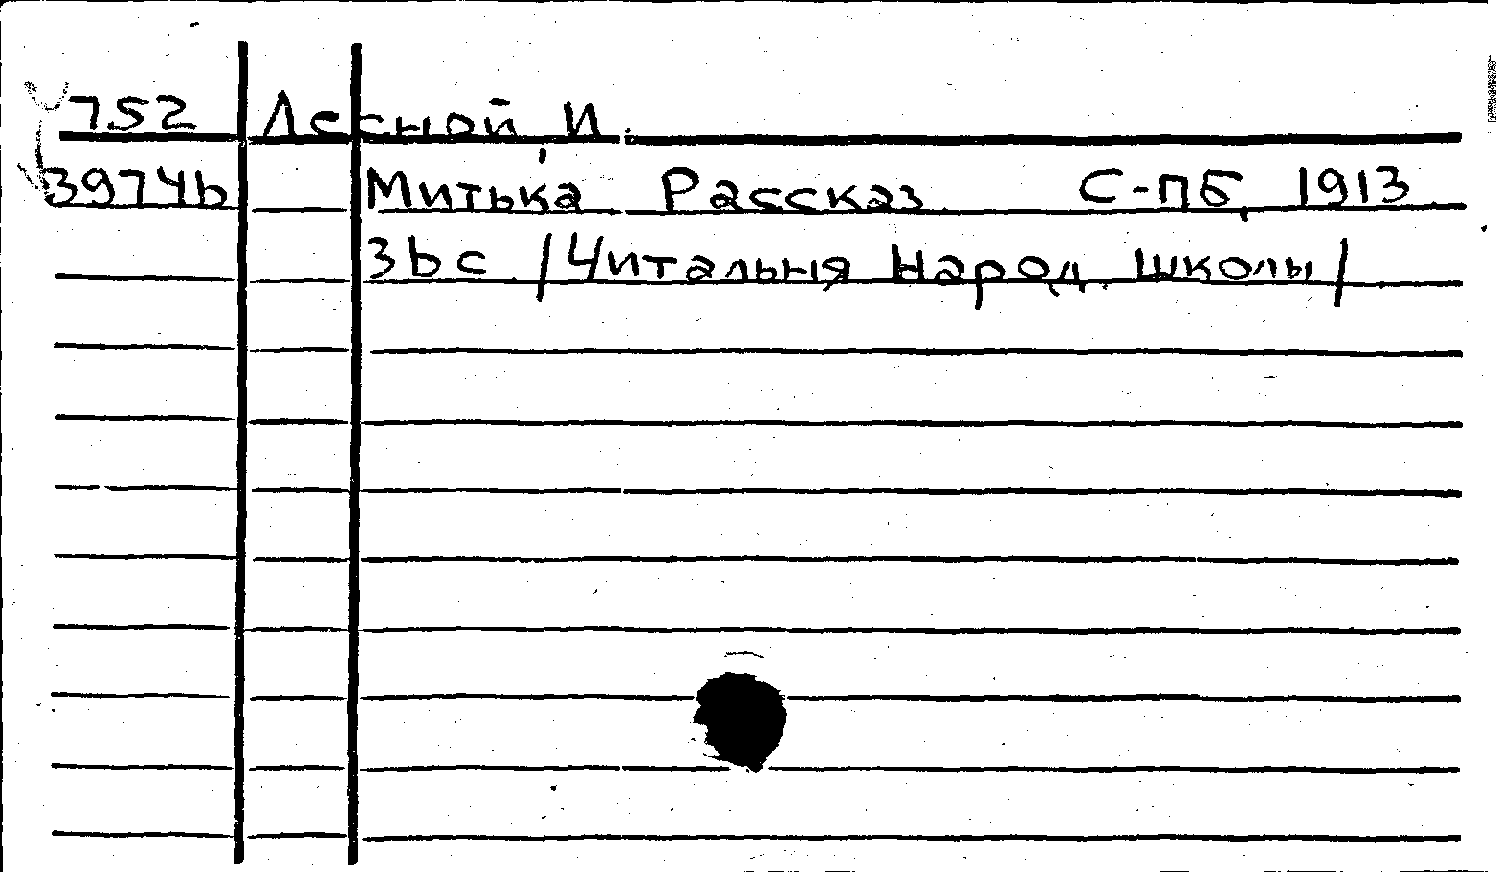 752 Лесной, И.
3974b Митька Рассказ С-ПБ, 1913
36 с /Читальня Народ. школы/